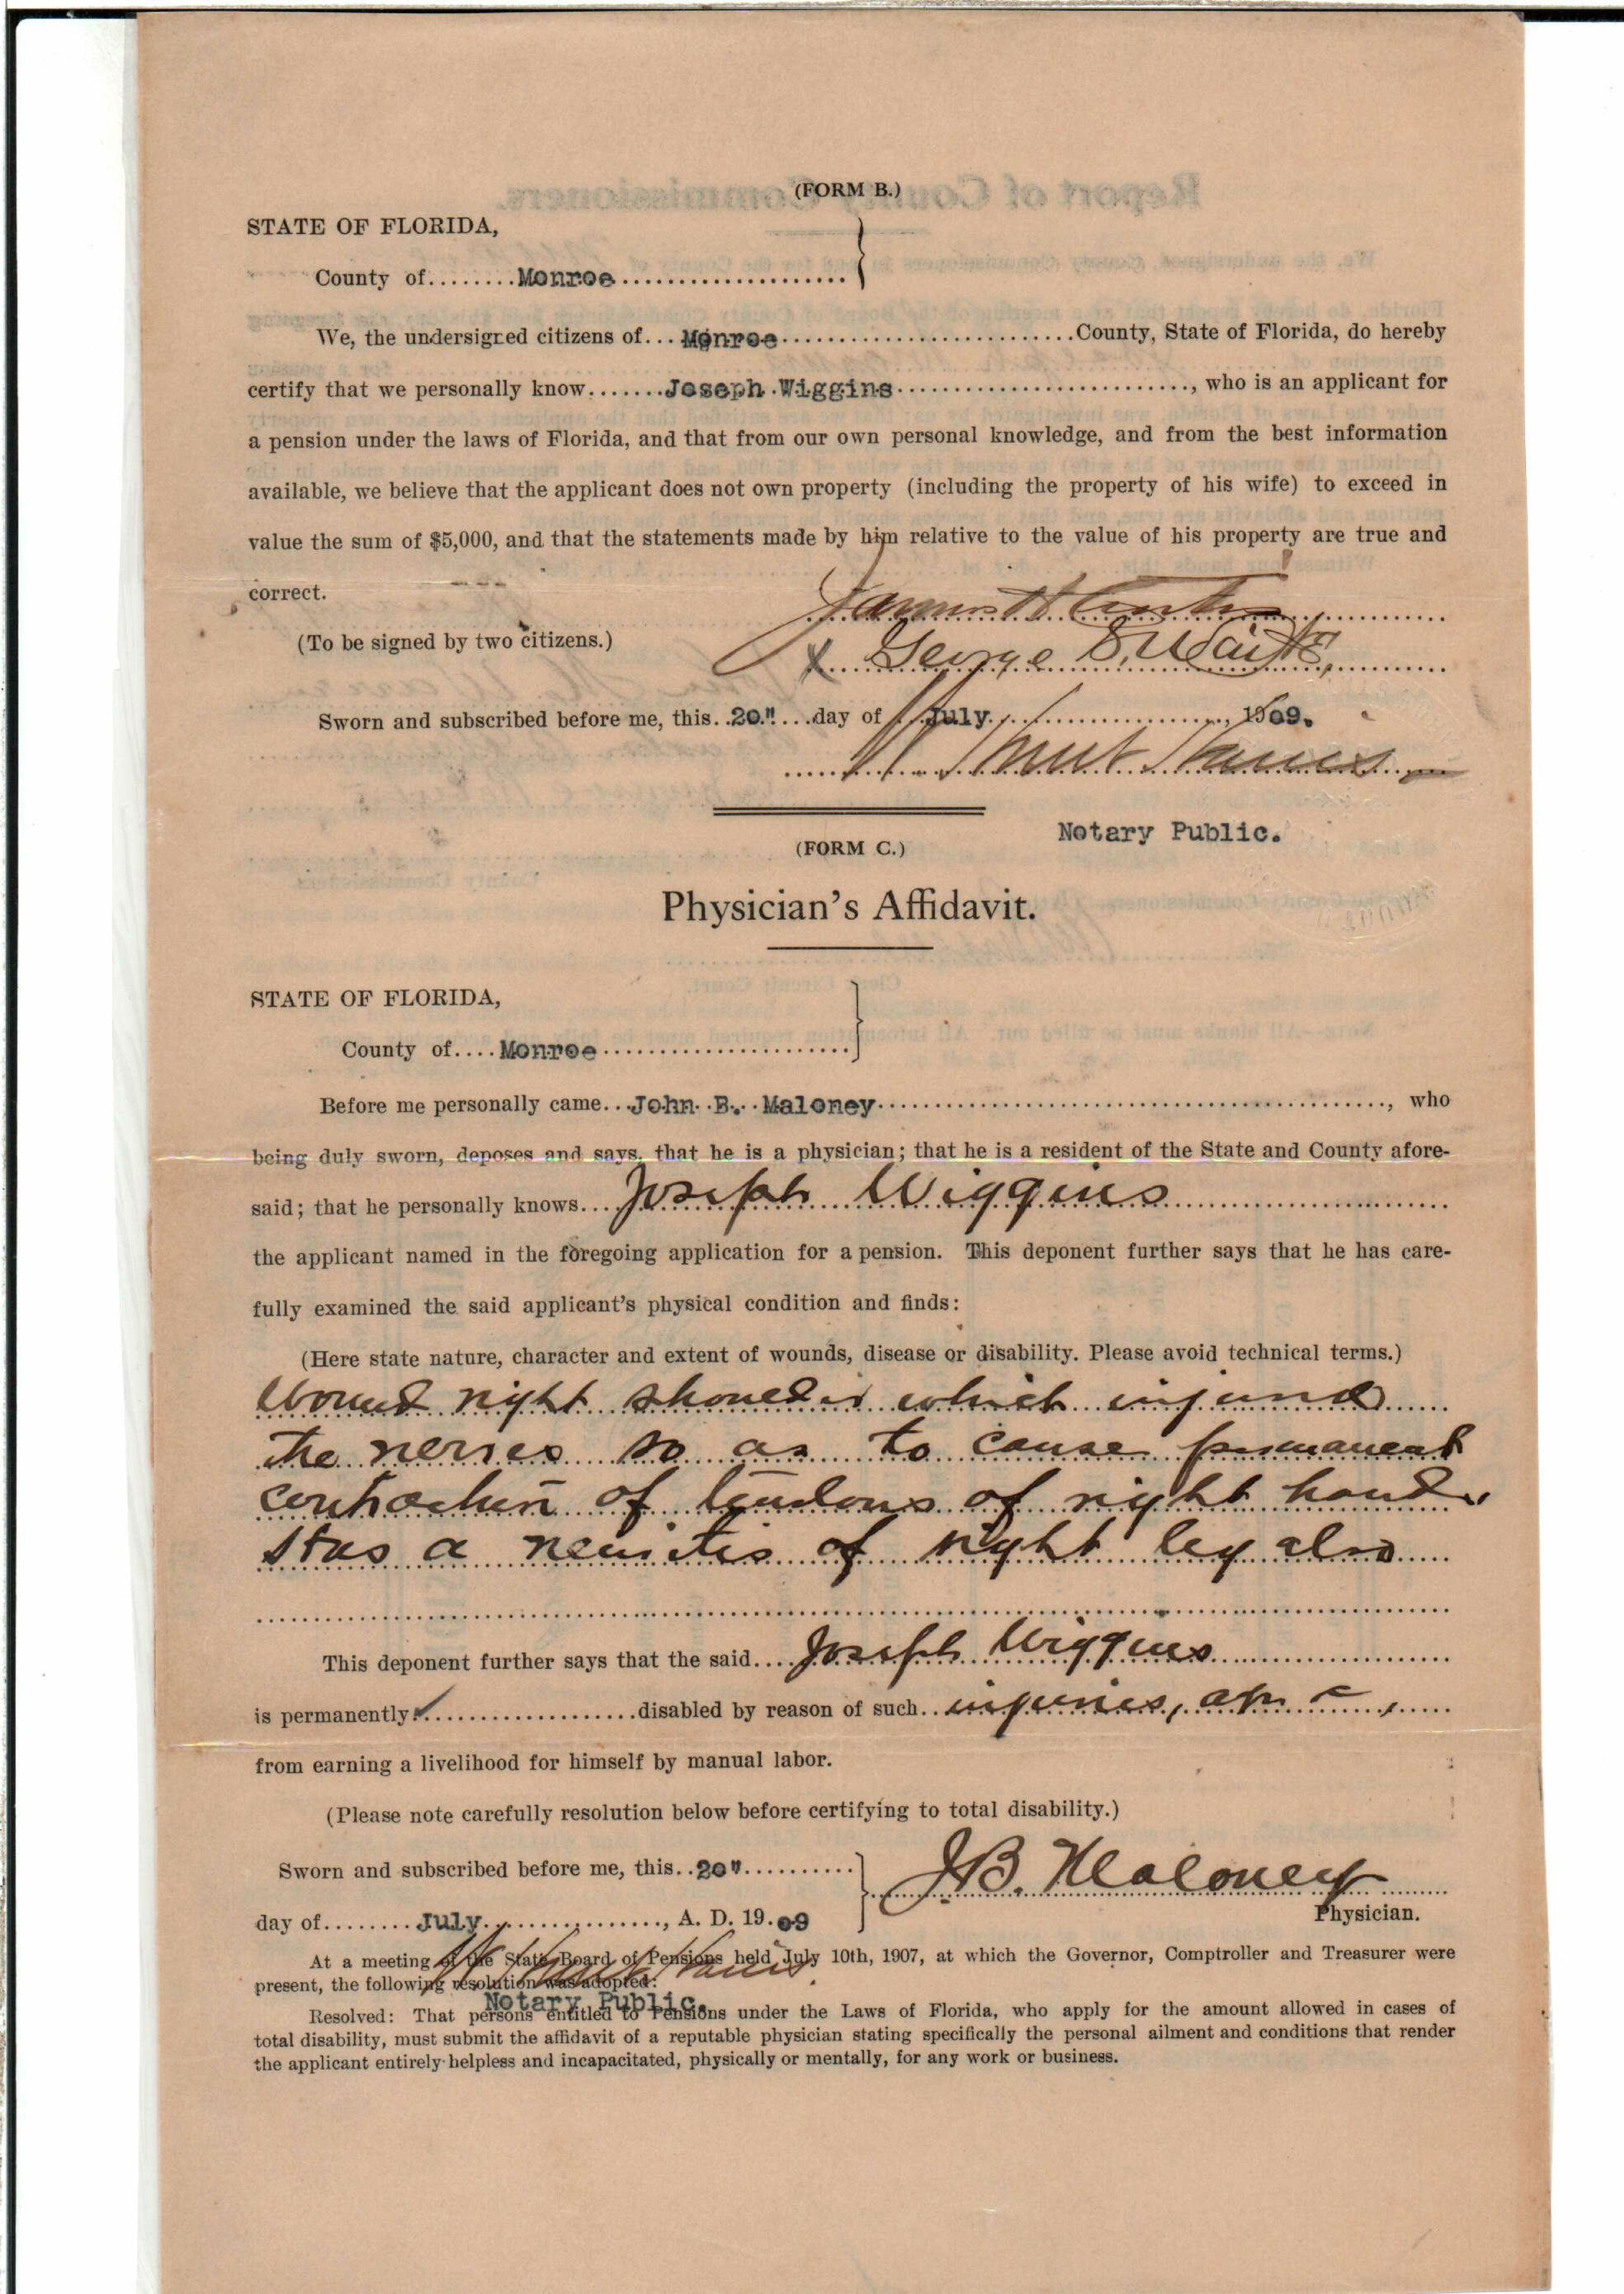 (FORM B.)
STATE OF FLORIDA,
County of........Monroe.....................
We, the undersigned citizens of...Monroe............................County, State of Florida, do hereby
certify that we personally know.......Joseph Wiggins............................, who is an applicant for
a pension under the laws of Florida, and that from our own personal knowledge, and from the best information
available, we believe that the applicant does not own property (including the property of his wife) to exceed in
value the sum of $5,000, and that the statements made by him relative to the value of his property are true and
correct.
James H
(To be signed by two citizens.)
X George S. Waite
Sworn and subscribed before me, this..20"...day of July......................., 1909.
Notary Public.
(FORM C.)
Physician's Affidavit.
STATE OF FLORIDA,
County of....Monroe........................
Before me personally came...John B. Maloney................................................, who
being duly sworn, deposes and says, that he is a physician; that he is a resident of the State and County afore-
said; that he personally knows....Joseph Wiggins..........................
the applicant named in the foregoing application for a pension. This deponent further says that he has care-
fully examined the said applicant's physical condition and finds:
(Here state nature, character and extent of wounds, disease or disability. Please avoid technical terms.)
Wound right shoulder which injured
the nerves so as to cause permanent
contraction of tendons of right hand.
Has a neuritis of right leg also
This deponent further says that the said....Joseph Wiggins.......................
is permanently ✓....................disabled by reason of such..injuries,
from earning a livelihood for himself by manual labor.
(Please note carefully resolution below before certifying to total disability.)
Sworn and subscribed before me, this..20"..........
J.B. Maloney
day of........July................, A. D. 19.09
Physician.
At a meeting of the State Board of Pensions held July 10th, 1907, at which the Governor, Comptroller and Treasurer were
present, the following resolution was adopted:
Notary Public.
Resolved: That persons entitled to Pensions under the Laws of Florida, who apply for the amount allowed in cases of
total disability, must submit the affidavit of a reputable physician stating specifically the personal ailment and conditions that render
the applicant entirely helpless and incapacitated, physically or mentally, for any work or business.